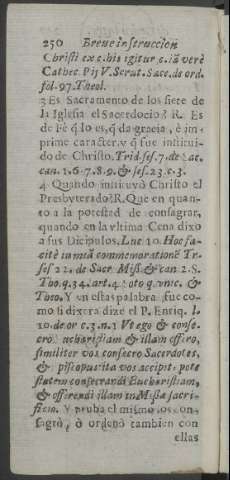 250 Breue instruccion
Christi ex c. his igitur c. iã verè
Cathec. Pij V. Serut. Sace. de ord.
fol. 97. Theol.
3 Es Sacramento de los siete de
la Iglesia el Sacerdocio? R. Es
de Fè q̃ lo es, q̃ da gracia, è im-
prime caracter, y q̃ fue instituì-
do de Christo. Trid. ses. 7. de Sac.
can. 1. 6. 7. 8. 9. & ses. 23. c. 3.
4 Quando instituyò Christo el
Presbyterado? R. Que en quan-
to a la potestad de consagrar,
quando en la vltima Cena dixo
a sus Dicipulos. Luc. 10. Hoc fa-
cite in meã commemorationẽ Tr.
ses 22. de Sacr. Miss. & can 2. S.
Tho. q. 34. art. 4. Soto q. vnic. &
Theo. Y en estas palabras fue co-
mo si dixera dize el P. Enriq. l.
10. de or c. 3. n. 1 Vt ego & conse-
cro Eucharistiam & illam offero,
similiter vos consecro Sacerdotes,
& piscopus ita vos accipit: pote
statem consecrandi Eucharistiam,
& offerendi illam in Missæ sacri-
ficio. Y prueba el mismo los con-
sagrò, ò ordenò tambien con
ellas